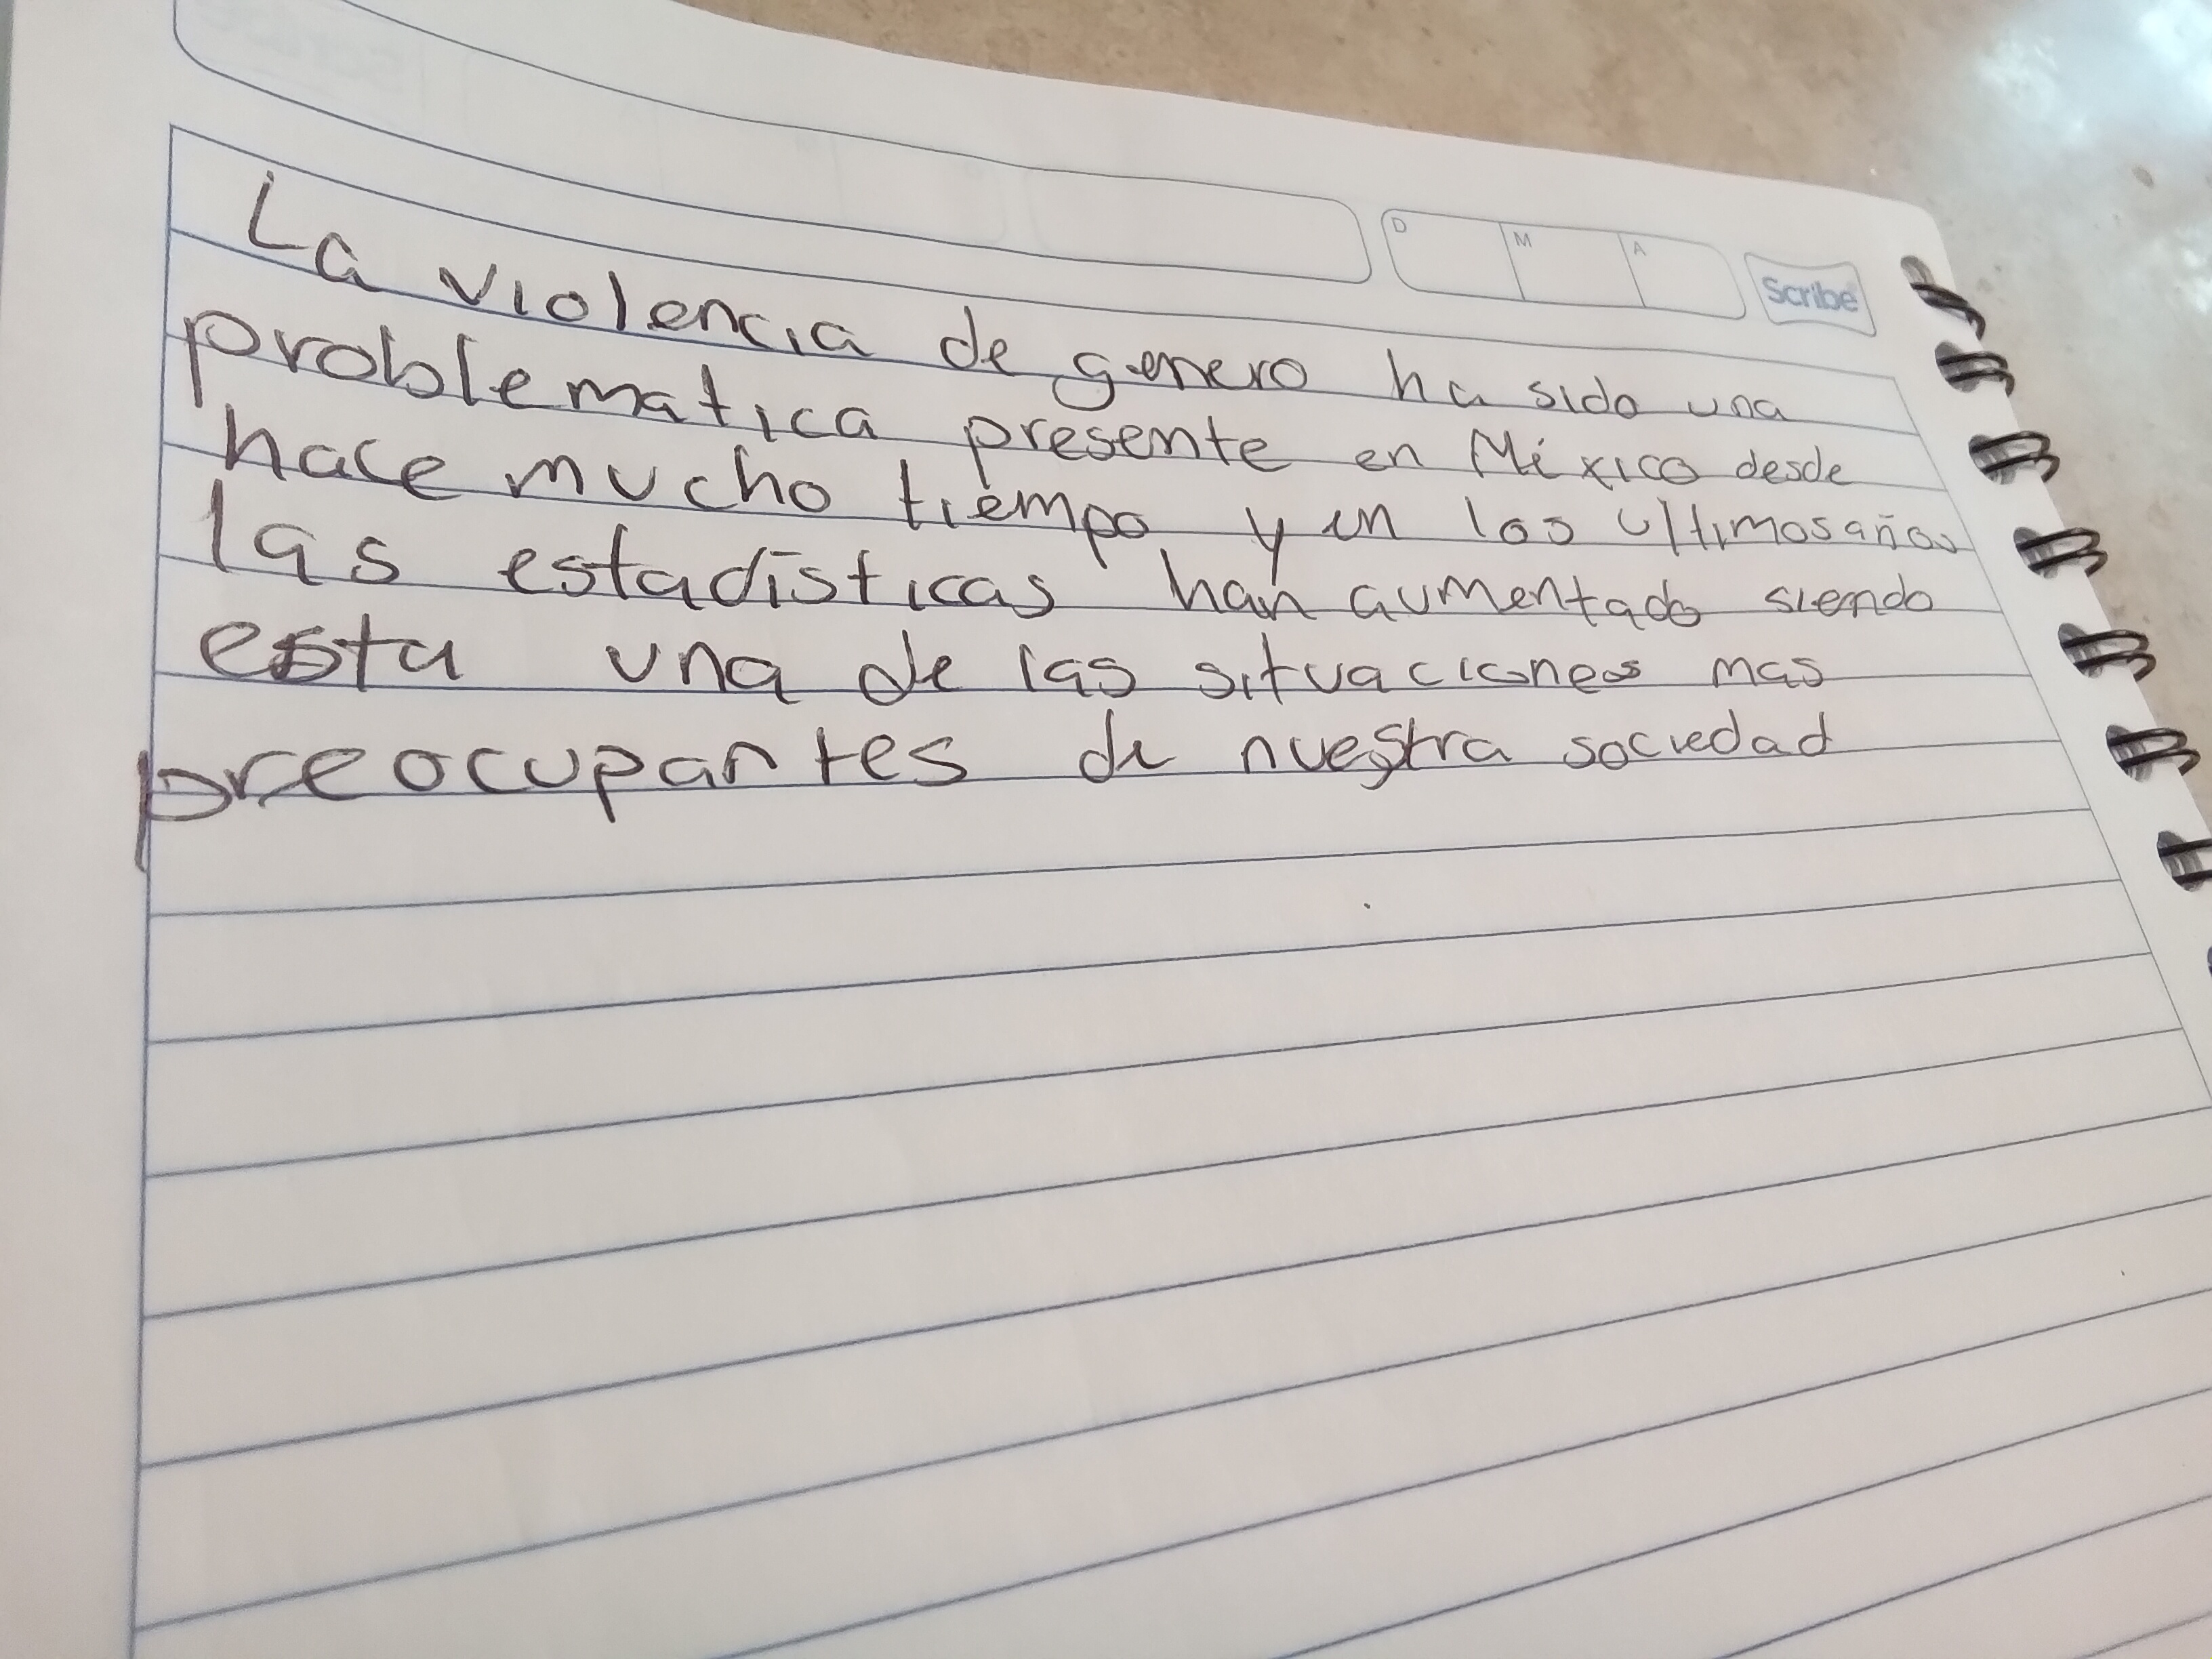 D M A Scribe
La violencia de genero ha sido una
problematica presente en México desde
hace mucho tiempo y en los ultimos años
las estadísticas han aumentado siendo
esta una de las situaciones mas
preocupantes de nuestra sociedad